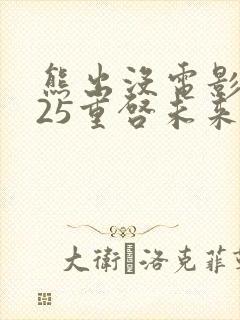 熊出没電影
25重啓未来
大衛·洛克菲